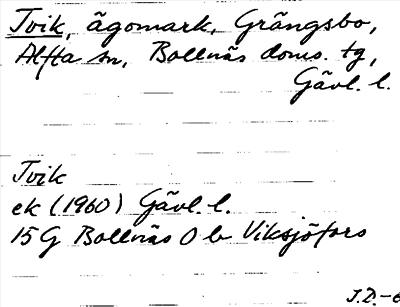 Tvik, ägomark, Grängsbo,
Alfta sn, Bollnäs doms. tg,
Gävl. l.
Tvik
ek (1960) Gävl. l.
15G Bollnäs O b Viksjöfors
J.D.-6